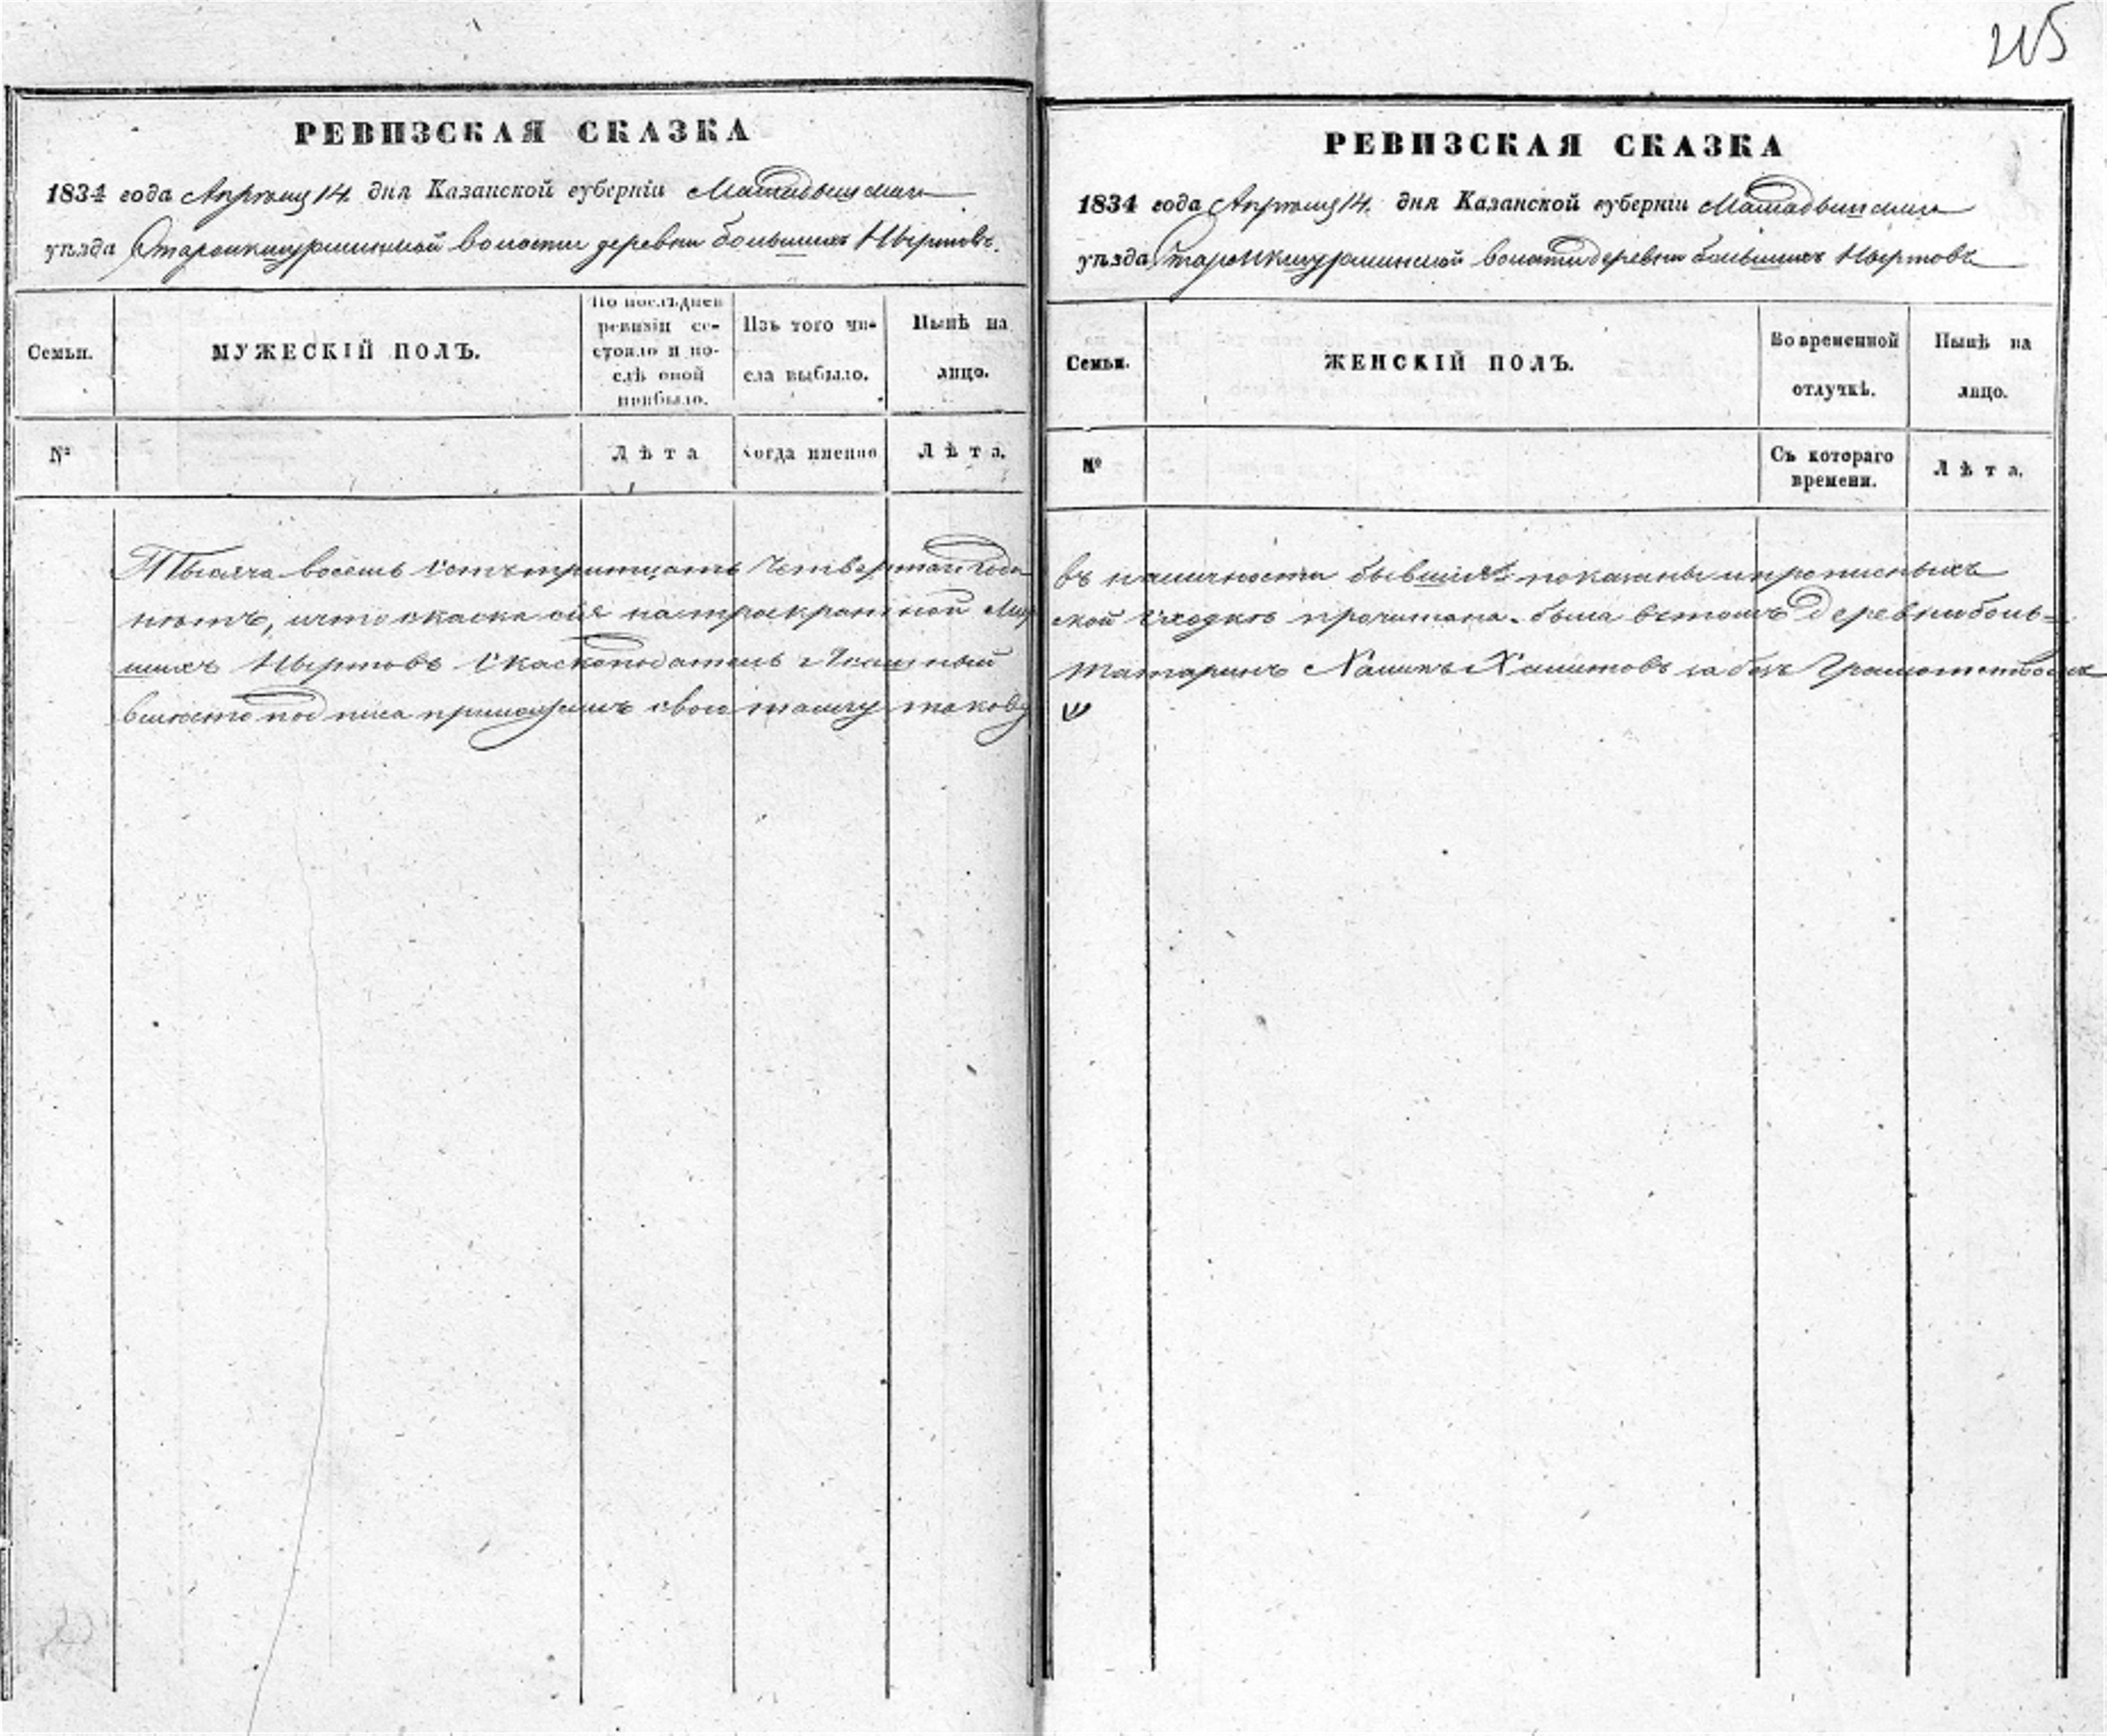 215
РЕВИЗСКАЯ СКАЗКА
1834 года Апреля 14. дня Казанской губерніи Мамадышскаго
уѣзда Староикшурминской волости деревни большихъ Ныртовъ.
Семьи.
МУЖЕСКІЙ ПОЛЪ.
По послѣдней ревизіи состояло и послѣ оной прибыло.
Изъ того числа выбыло.
Нынѣ на лицо.
№
Лѣта
Когда именно
Лѣта.
Тысяча восемь сотъ тритцать четвертаго года
нѣтъ, и что скаска сія на троекратной Мир
шихъ Ныртовъ Скаскоподатель Ясашный
вместо подписа приложилъ свою тамгу такову
РЕВИЗСКАЯ СКАЗКА
1834 года Апреля 14. дня Казанской губерніи Мамадышскаго
уѣзда Староикшурминской волости деревни большихъ Ныртовъ
Семьи.
ЖЕНСКІЙ ПОЛЪ.
Во временной отлучкѣ.
Нынѣ на лицо.
№
Съ котораго времени.
Лѣта.
въ наличности бывшія показаны и прописныхъ
ской сходкѣ прочитана. была въ томъ деревни боль-
татаринъ Халитовъ за безъ Грамотствомъ